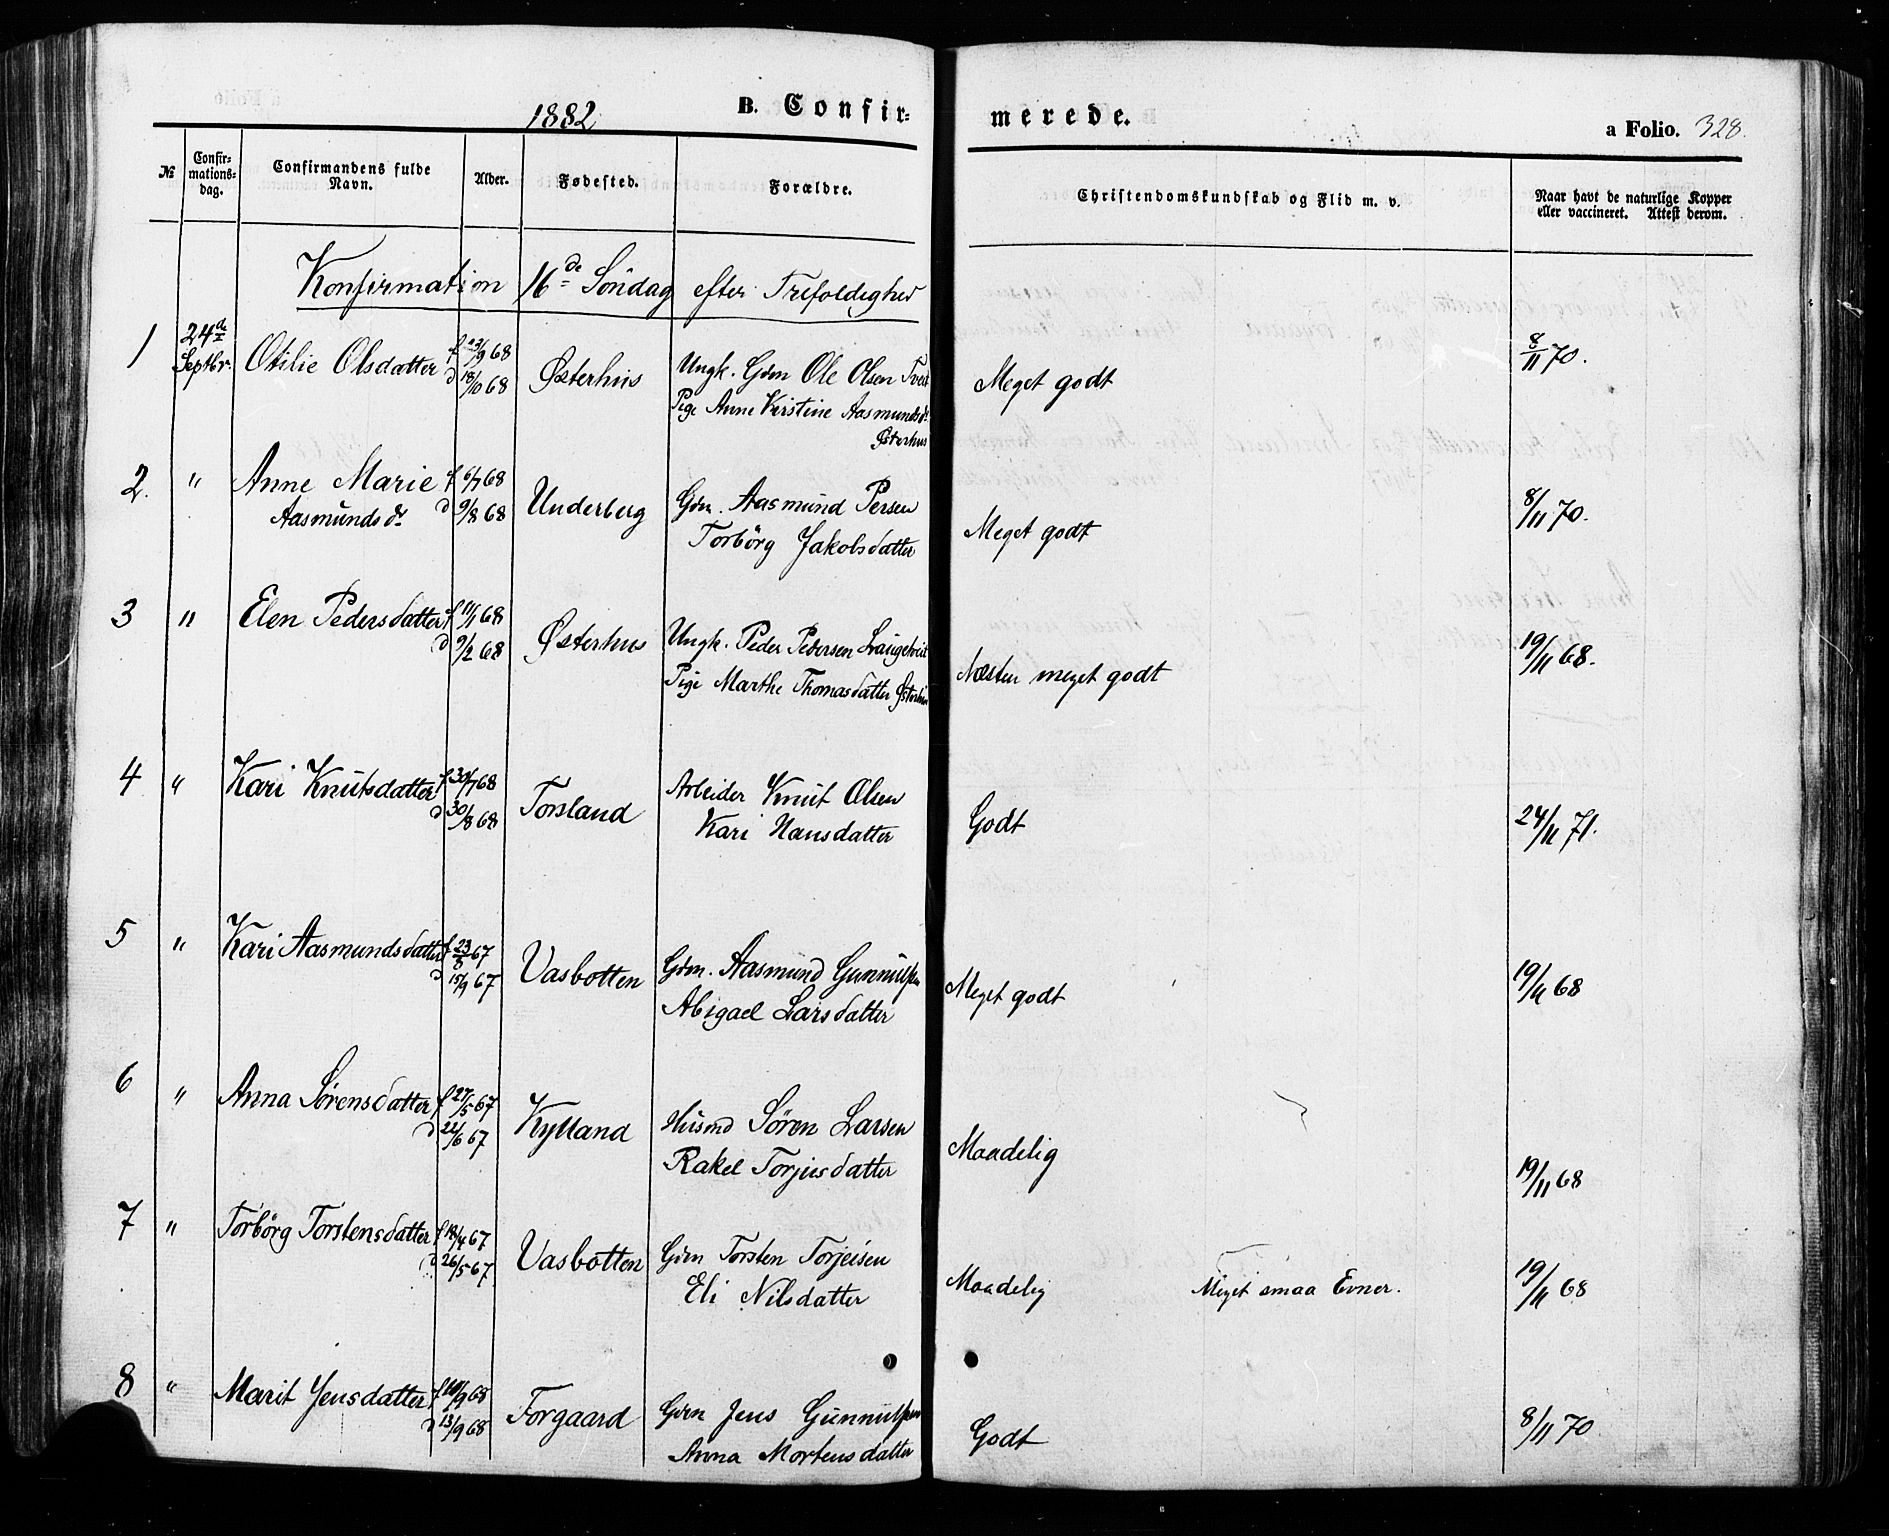 1882
B. Confir-
merede.
a Folio. 328.
№
Confir-
mations-
dag.
Confirmandens fulde
Navn.
Alder.
Fødested.
Forældre.
Christendomskundskab og Flid m. v.
Naar havt de naturlige Kopper
eller vaccineret. Attest derom.
Konfirmation 16de Söndag efter Trefoldighed
1 24de Septbr. Otilie Olsdatter f 23/9 68 Østerhus Ungk. Gdm Ole Olsen Tveit Meget godt 8/11 70.
d 18/10 68 Pige Anne Kirstine Aasmundsdr.
Østerhus
2. " Anne Marie f 6/7 68 Underberg Gdm. Aasmund Persen Meget godt 8/11 70.
Aasmundsdr d 9/8 68 Torbörg Jakobsdatter
3 " Elen Pedersdatter f 11/1 68 Østerhus Ungk. Peder Pedersen Langetveit Næsten meget godt 19/11 68.
d 9/2 68 Pige Marthe Thomasdatter Østerhus
4 " Kari Knutsdatter f 30/7 68 Torsland Arbeider Knut Olsen Godt 24/11 71.
d 30/8 68 Kari Hansdatter
5 " Kari Aasmundsdatter f 23/8 67 Vasbotten Gdm. Aasmund Gunnulfsen Meget godt 19/11 68
d 15/9 67 Abigael Larsdatter
6 " Anna Sørensdatter f 27/5 67 Kylland Husmd Sören Larsen Maadelig 19/11 68
d 22/6 67 Rakel Torjusdatter
7 " Torbörg Torstensdatter f 18/4 67 Vasbotten Gdm Torsten Torjeisen Maadelig Meget smaa Evner. 19/11 68
d 26/5 67 Eli Nilsdatter
8 " Marit Jensdatter f /9 68 Torgaard Gdm Jens Gunnulfsen Godt 8/11 70
d 13/9 68 Anna Mortensdatter